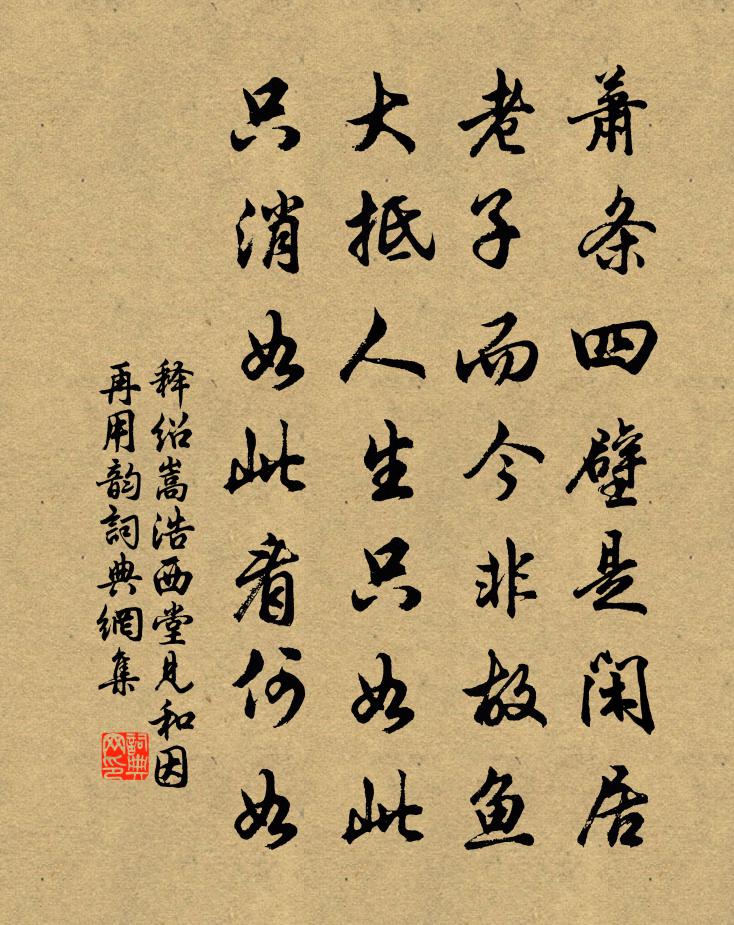 萧条四壁是闲居
老子而今非故鱼
大抵人生只如此
只消如此看何如
释绍嵩浩西堂见和因
再用韵詞典網集
詞典
网印